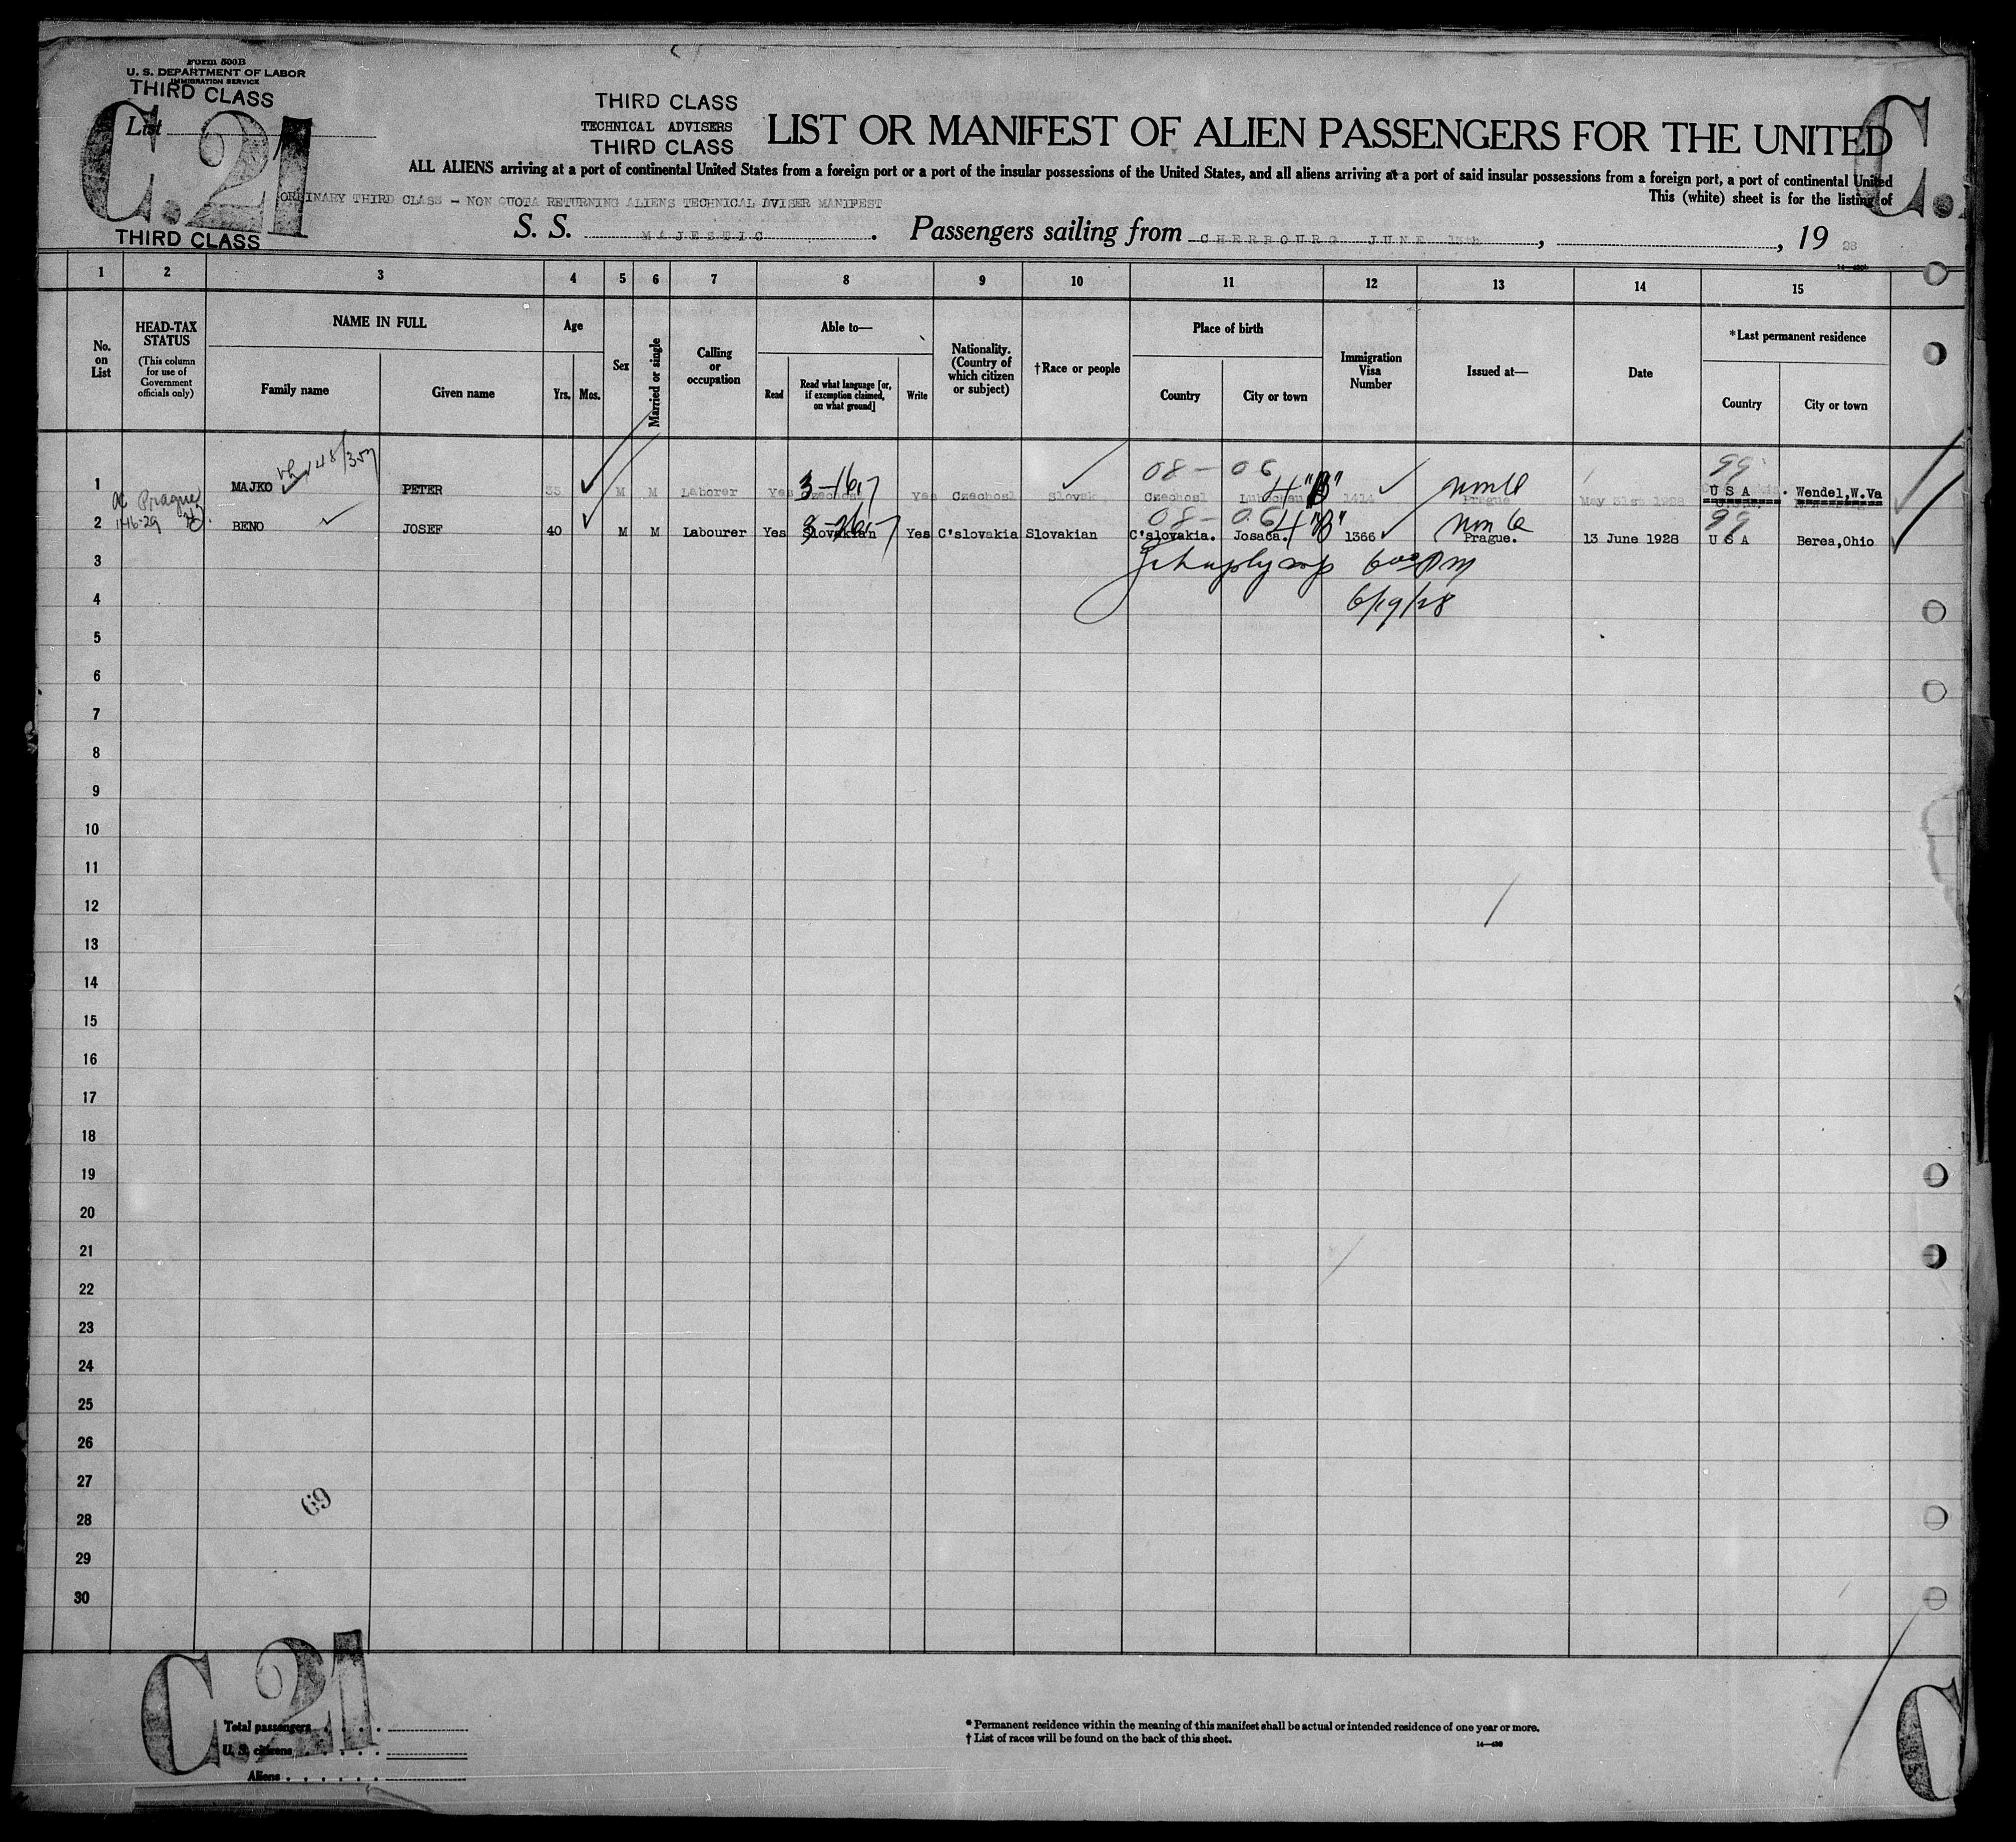 Form 500B
U. S. DEPARTMENT OF LABOR
IMMIGRATION SERVICE
THIRD CLASS
List
C.21
THIRD CLASS
THIRD CLASS
TECHNICAL ADVISERS
THIRD CLASS
LIST OR MANIFEST OF ALIEN PASSENGERS FOR THE UNITED
C.
ALL ALIENS arriving at a port of continental United States from a foreign port or a port of the insular possessions of the United States, and all aliens arriving at a port of said insular possessions from a foreign port, a port of continental United
This (white) sheet is for the listing of
ORDINARY THIRD CLASS - NON QUOTA RETURNING ALIENS TECHNICAL DVISER MANIFEST
S. S. MAJESTIC. Passengers sailing from CHERBOURG JUNE 13th, , 19 28
1 2 3 4 5 6 7 8 9 10 11 12 13 14 15
No. on List
HEAD-TAX STATUS
(This column for use of Government officials only)
NAME IN FULL
Family name
Given name
Age
Yrs. Mos.
Sex
Married or single
Calling or occupation
Able to—
Read
Read what language [or, if exemption claimed, on what ground]
Write
Nationality. (Country of which citizen or subject)
†Race or people
Place of birth
Country
City or town
Immigration Visa Number
Issued at—
Date
*Last permanent residence
Country
City or town
08 - 06 99
1 MAJKO PETER 33 M M Laborer Yes Czechosl Yes Czechosl Slovak Czechosl 4"B" 1414 Prague May 31st 1928 U S A Wendel,W.Va
3-16,7
Prague
1-16-29
08 - 06 99
2 BENO JOSEF 40 M M Labourer Yes Slovakian Yes C'slovakia Slovakian C'slovakia. Josaca. 4"B" 1366 Prague. 13 June 1928 U S A Berea,Ohio
3
6 00 PM
4
6/19/28
5
6
7
8
9
10
11
12
13
14
15
16
17
18
19
20
21
22
23
24
25
26
27
69
28
29
30
C.21
Total passengers
U. S. citizens
Aliens
* Permanent residence within the meaning of this manifest shall be actual or intended residence of one year or more.
† List of races will be found on the back of this sheet.
14—430
C